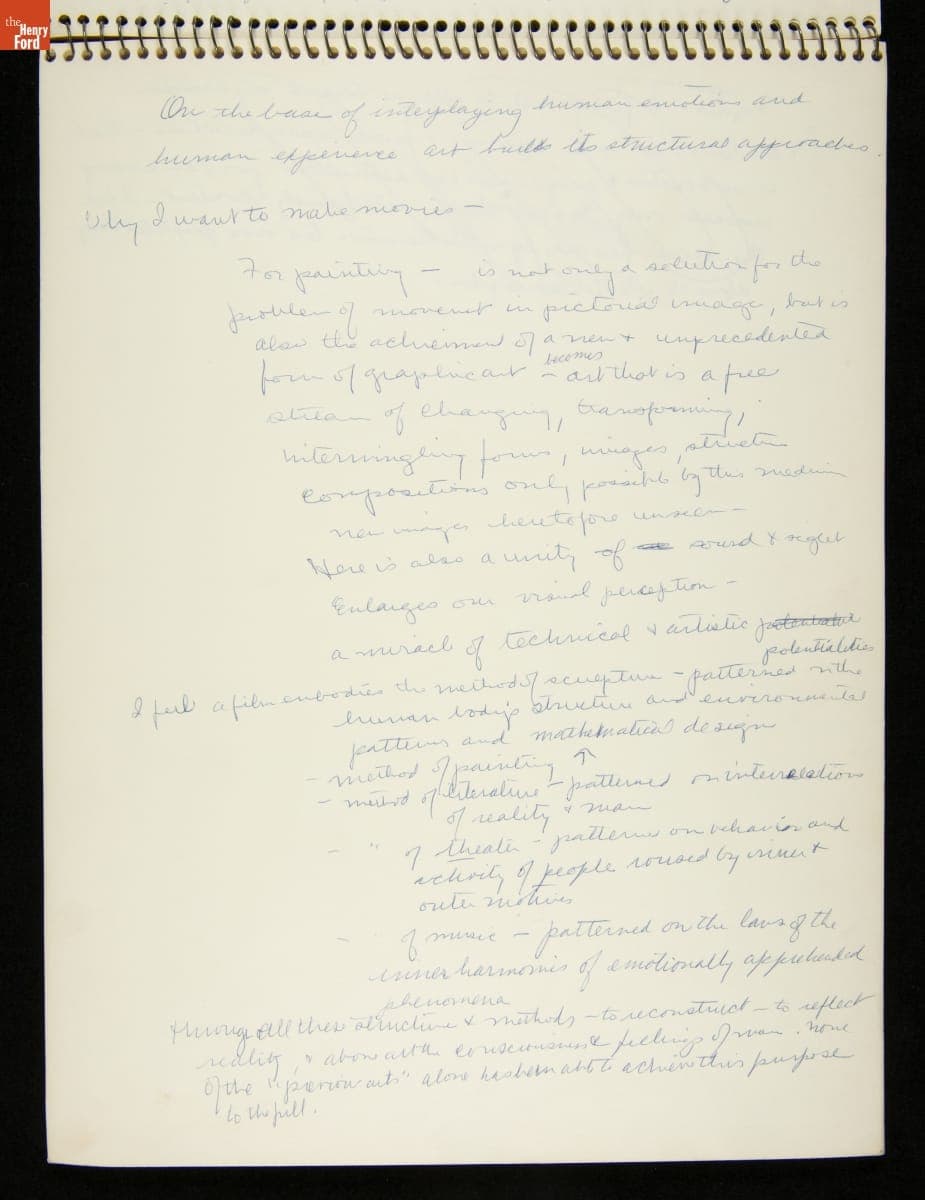 the Henry Ford
On the base of interplaying human emotions and
human experience art builds its structural approaches.
Why I want to make movies —
For painting — is not only a solution for the
problem of movement in pictorial image, but is
also the achievement of a new & unprecedented
form of graphic art — becomes art that is a free
stream of changing, transforming,
intermingling forms, images, structure
compositions only possible by this medium
new images heretofore unseen —
Here is also a unity of sound & sight
Enlarges our visual perception —
a miracle of technical & artistic potential
potentialities
I feel a film embodies the method of sculpture — patterned in the
human body's structure and environmental
patterns and mathematical design
— method of painting ↑
— method of literature — patterned on interrelations
of reality & man
— " of theater — patterns on behavior and
activity of people roused by inner &
outer motives
— of music — patterned on the laws of the
inner harmonies of emotionally apprehended
phenomena
through all these structure & methods — to reconstruct — to reflect
reality, & above all the consciousness & feelings of man. none
of the "previous arts" alone has been able to achieve this purpose
to the full.